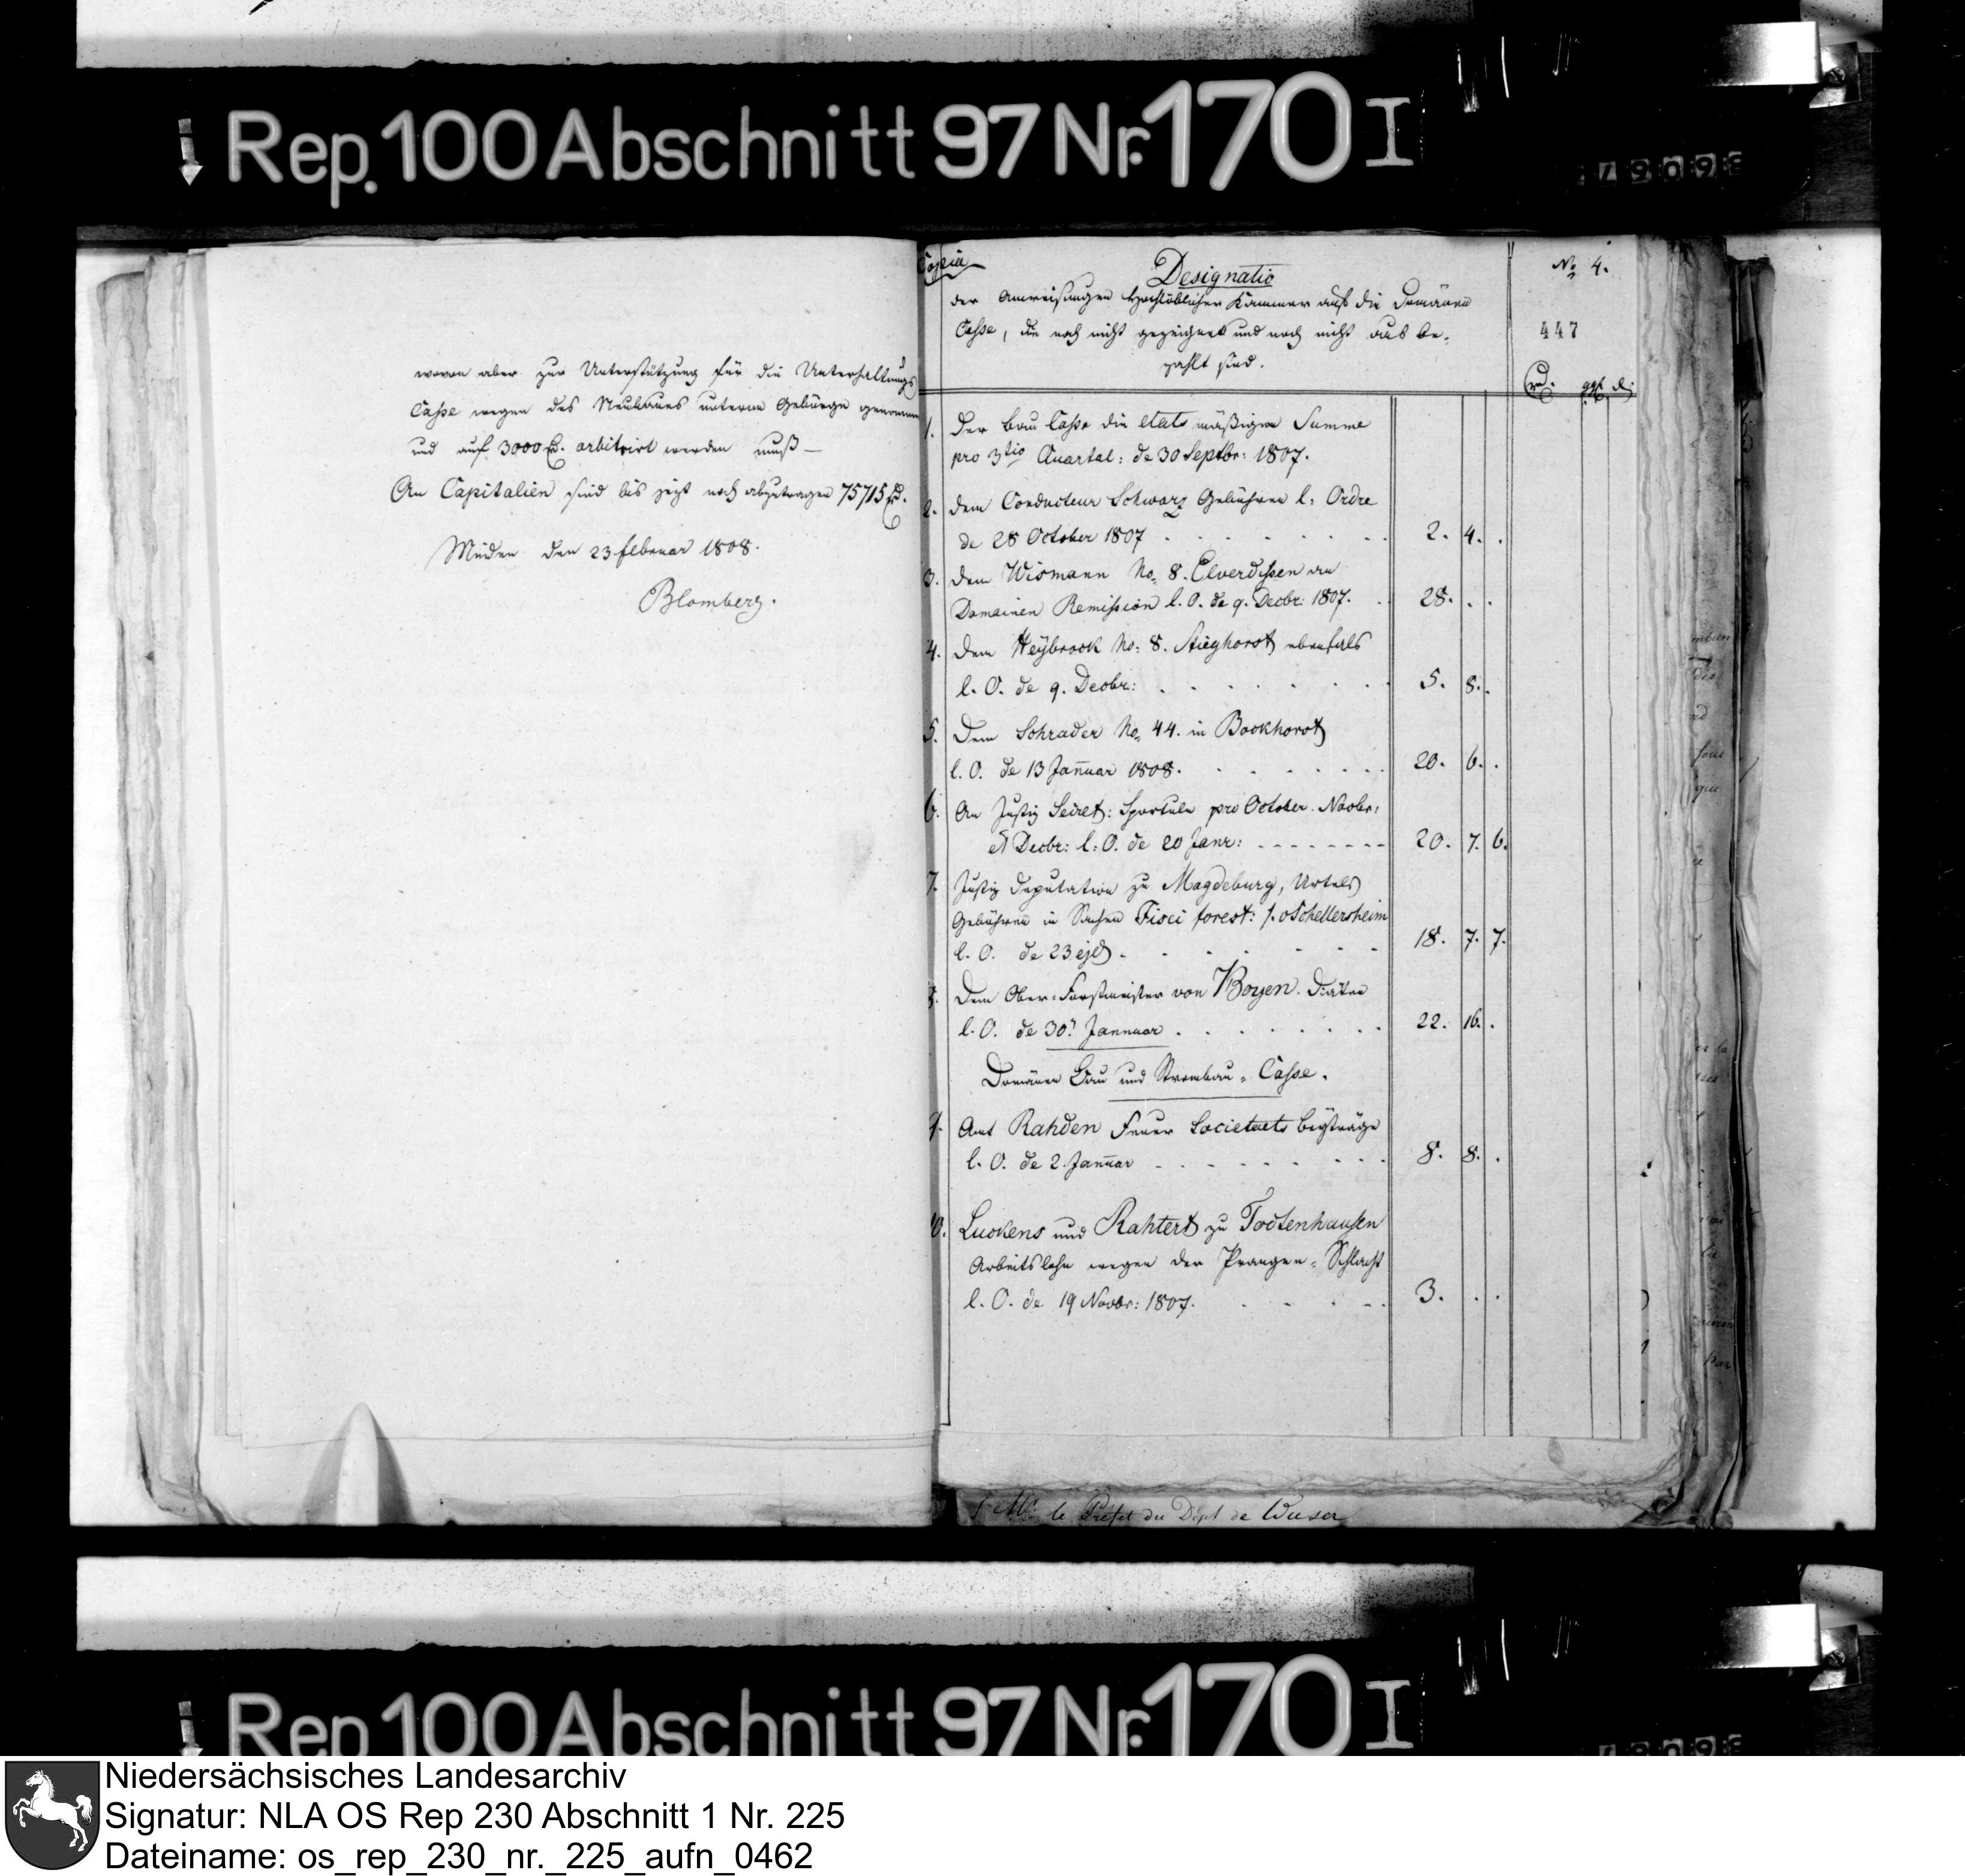 Rep. 100 Abschnitt 97 Nr. 170 I
wovon aber zur Unterstützung für die Unterhaltungs
Casse wegen des Neubaues unterm Gebürge genommen
und auf 3000 rt. arbitrirt werden muß —
An Capitalien sind bis jezt noch abzutragen 75715 rt.
Minden den 23 Februar 1808.
Blomberg.
Copia
Designatio
der Anweisungen Hochlöblicher Kammer auf die Domänen
Casse, die noch nicht gezeichnet und noch nicht aus be-
zahlt sind.
No 4.
447
rt. ggl. d.
1. Der Bau Casse die etats mäßigen Summe
pro 3tio Quartal: de 30 Septbr: 1807.
2. Dem Conducteur Schwarz Gebühren l: Ordre
de 28 October 1807 2. 4. .
3. Dem Wismann No 8. Elverdissen an
Domainen Remission l. O. de 9. Decbr: 1807. 28. . .
4. Dem Heybrock No: 8. Stieghorst ebenfals
l. O. de 9. Decbr: 5. 8. .
5. Dem Schrader No 44. in Bockhorst
l. O. de 13 Januar 1808. 20. 6. .
6. An Justiz Secret: Sportuln pro October. Novbr:
et Decbr: l: O. de 20 Janr: 20. 7. 6.
7. Justiz Deputation zu Magdeburg, Urtels
Gebühren in Sachen Fisci forest: /. v Schellersheim
l. O. de 23 ejd. 18. 7. 7.
8. Dem Ober-Forstmeister von Boyen. Diäten
l. O. de 30t Januar 22. 16. .
Domänen Bau und Strombau-Casse.
9. Amt Rahden Feuer Societaets Beyträge
l. O. de 2. Januar 8. 8. .
10. Luckens und Rahtert zu Todtenhausen
Arbeitslohn wegen der Prangen-Schlacht
l. O. de 19 Novbr: 1807. 3. . .
le Préfet du Dépt de Weser
Rep 100 Abschnitt 97 Nr. 170 I
Niedersächsisches Landesarchiv
Signatur: NLA OS Rep 230 Abschnitt 1 Nr. 225
Dateiname: os_rep_230_nr._225_aufn_0462